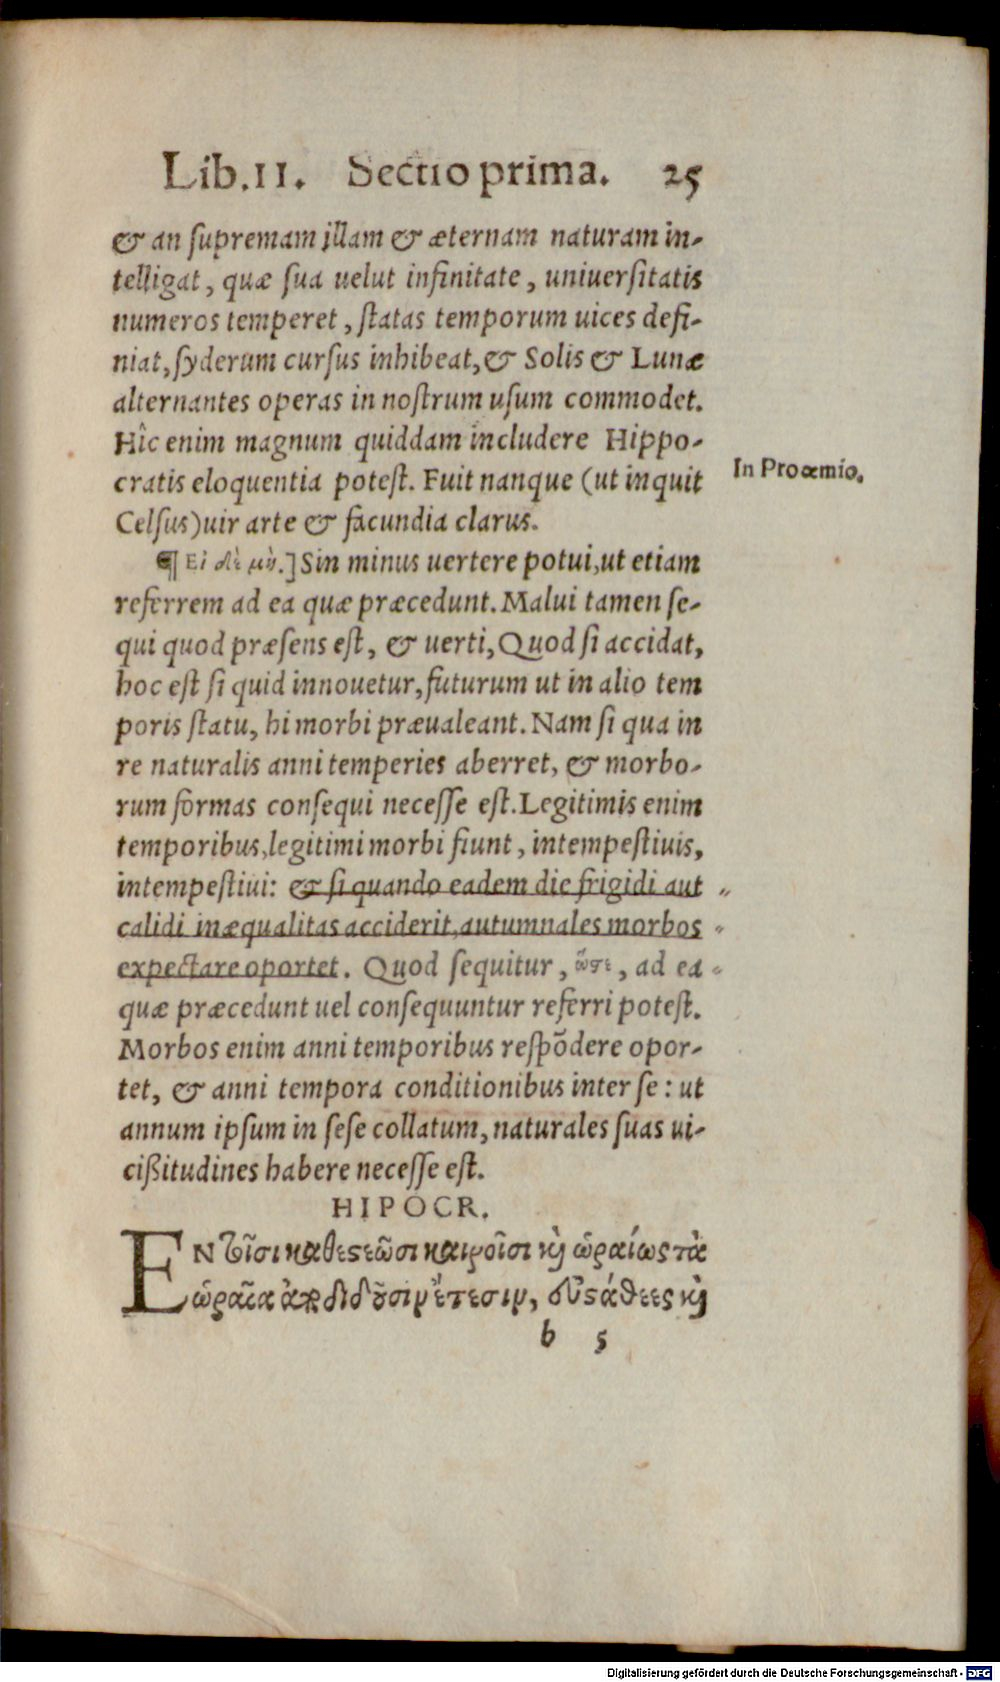 Lib.II. Sectio prima. 25
& an supremam illam & æternam naturam in-
telligat, quæ sua velut infinitate, uniuersitatis
numeros temperet, statas temporum uices defi-
niat, syderum cursus inhibeat, & Solis & Lunæ
alternantes operas in nostrum usum commodet.
Hîc enim magnum quiddam includere Hippo-
cratis eloquentia potest. Fuit nanque (ut inquit
In Proœmio.
Celsus) uir arte & facundia clarus.
¶ Εἰ δὲ μὴ.] Sin minus uertere potui, ut etiam
referrem ad ea quæ præcedunt. Malui tamen se-
qui quod præsens est, & uerti, Quod si accidat,
hoc est si quid innouetur, futurum ut in alio tem
poris statu, hi morbi præualeant. Nam si qua in
re naturalis anni temperies aberret, & morbo-
rum formas consequi necesse est. Legitimis enim
temporibus, legitimi morbi fiunt, intempestiuis,
intempestiui: & si quando eadem die frigidi aut
calidi inæqualitas acciderit, autumnales morbos
expectare oportet. Quod sequitur, ὥστε, ad ea
quæ præcedunt uel consequuntur referri potest.
Morbos enim anni temporibus respõdere opor-
tet, & anni tempora conditionibus inter se: ut
annum ipsum in sese collatum, naturales suas ui-
cißitudines habere necesse est.
HIPOCR.
ΕΝ τοῖσι καθεστεῶσι καιροῖσι καὶ ὡραίως τὰ
ὡραῖα ἀποδιδοῦσιν ἔτεσιν, εὐσταθέες καὶ
b 5
Digitalisierung gefördert durch die Deutsche Forschungsgemeinschaft - DFG